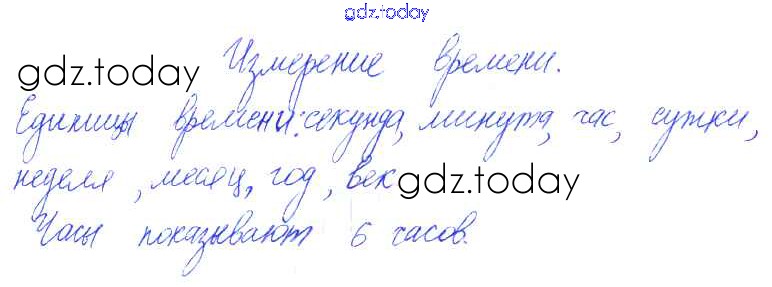 gdz.today
Измерение времени.
gdz.today
Единицы времени: секунда, минута, час, сутки,
неделя, месяц, год, век
gdz.today
Часы показывают 6 часов.